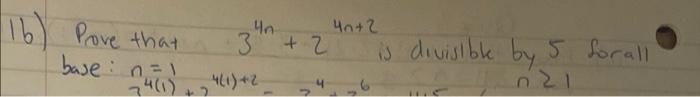 16) Prove that 3^{4n} + 2^{4n+2} is divisible by 5 for all n ≥ 1
base: n = 1
3^{4(1)} + 2^{4(1)+2} = 3^4 + 2^6